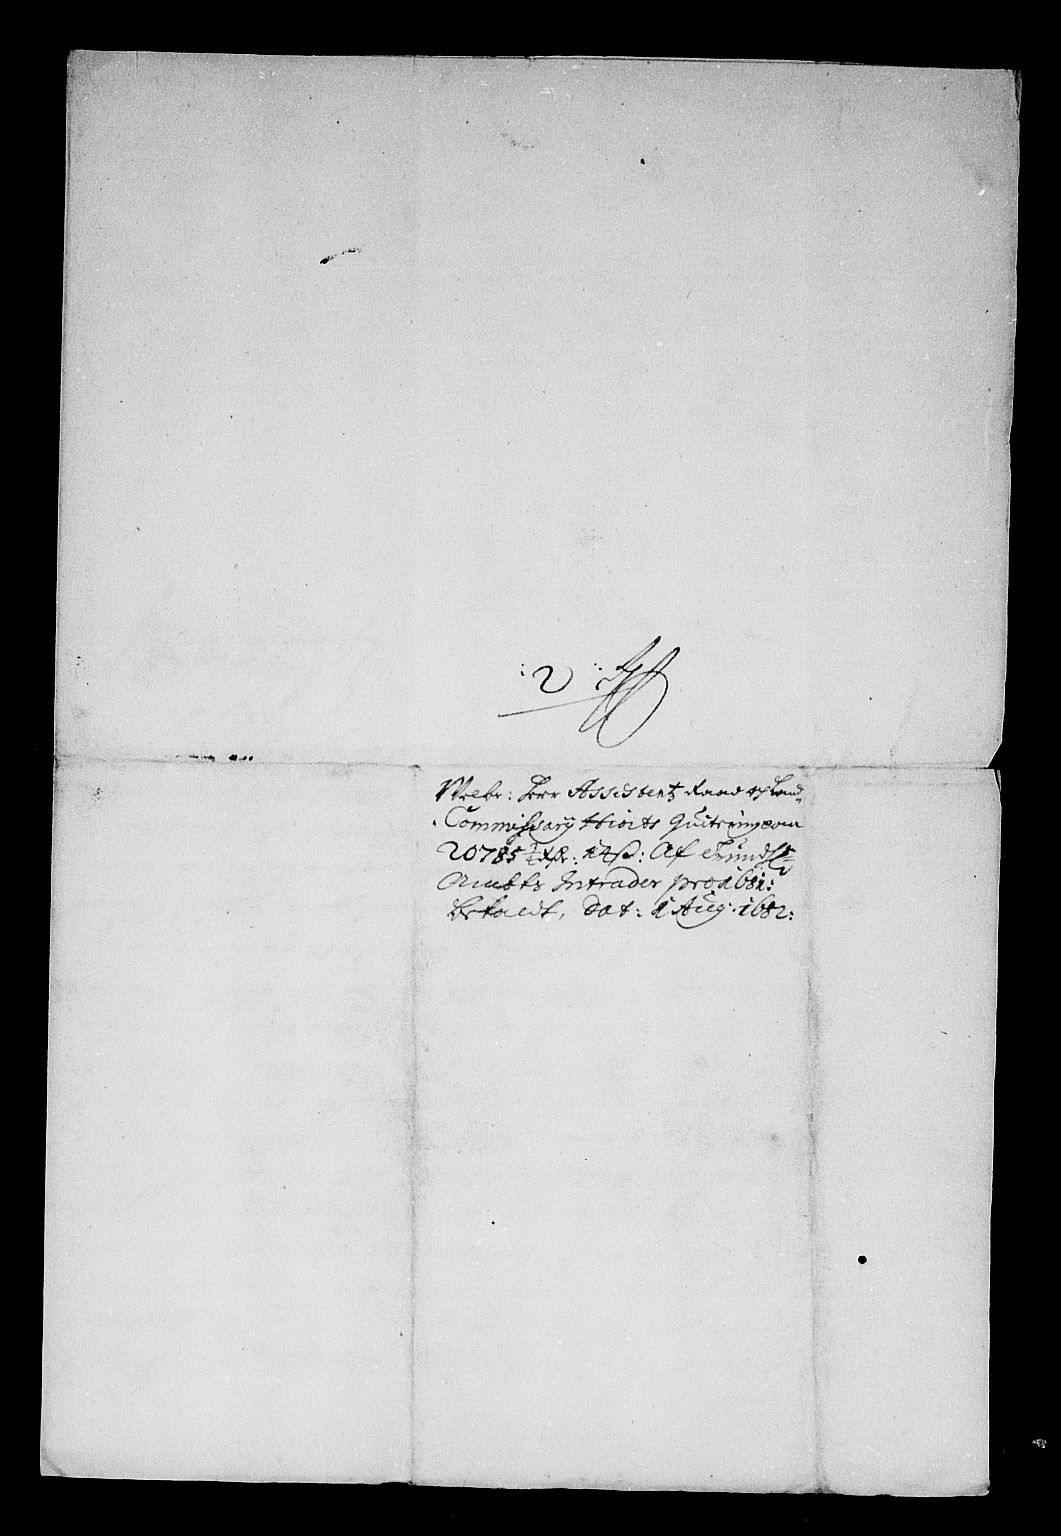 : 2 :
Welbr: Herr Assistentz Raad og Land
Commissary Hiorts Quitering paa
20785 ½ Rdr: 14 ß: Af Trundh:
Ambts Intrader pro 1681:
betaldt, Dat: 1 Aug: 1682: